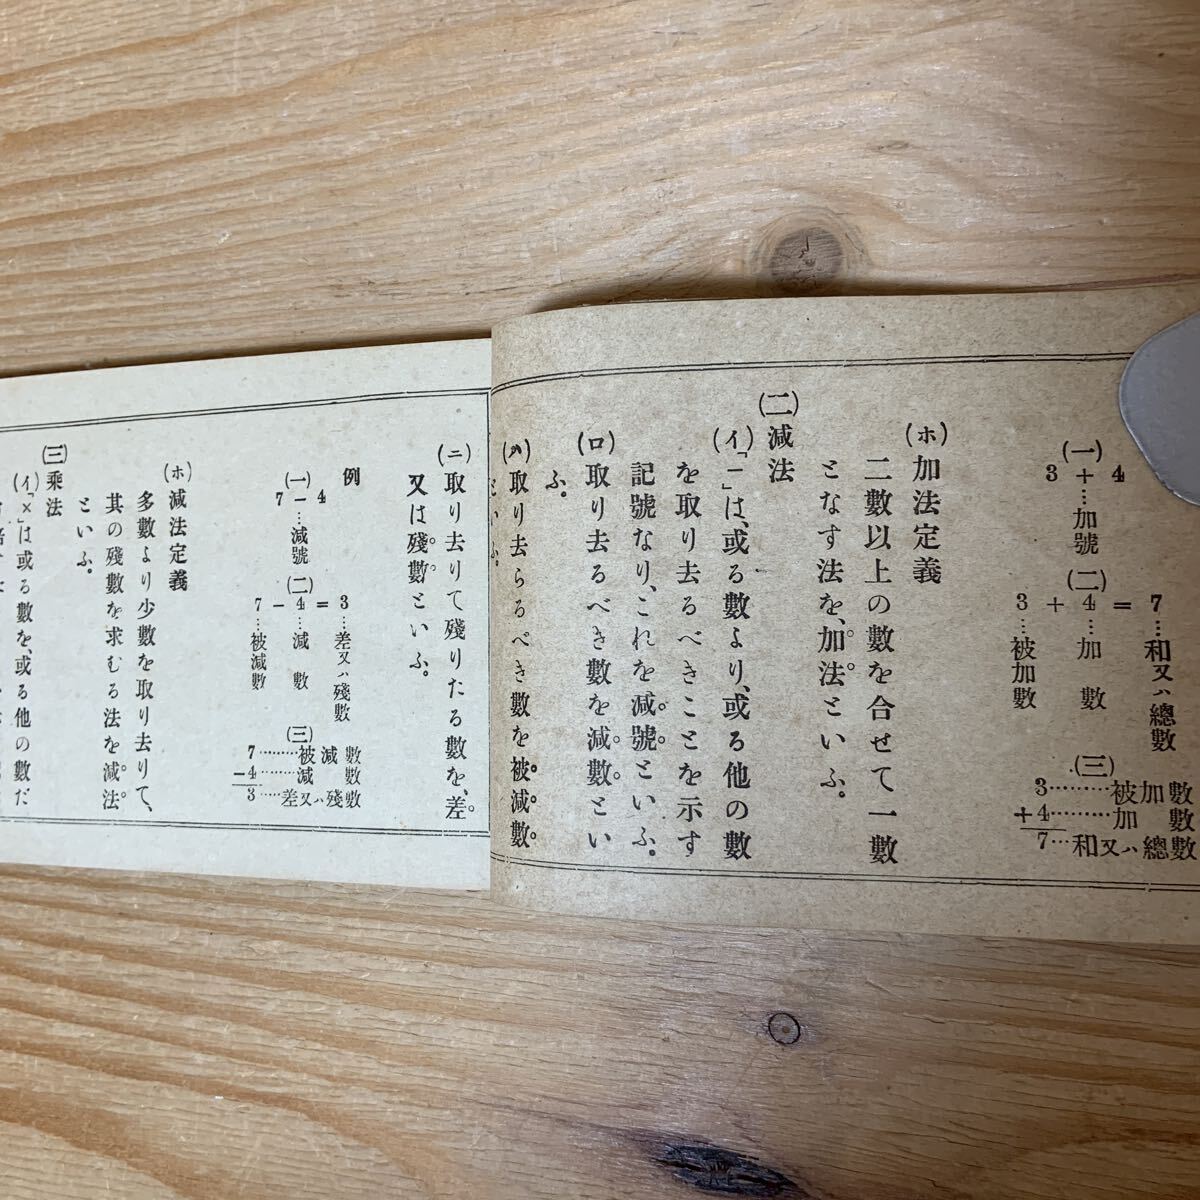 (一)
3 + 4
⋮
加號
(二)
3 + 4 = 7
3…被加數
4…加數
7…和又ハ總數
(三)
3………被加數
+4………加數
7…和又ハ總數
(ホ)加法定義
二數以上の數を合せて一數
となす法を、加法といふ。
(二)減法
(イ)「−」は、或る數より、或る他の數
を取り去るべきことを示す
記號なり、これを減號といふ。
(ロ)取り去るべき數を減數とい
ふ。
(ハ)取り去らるべき數を被減數。
といふ。
(ニ)取り去りて殘りたる數を、差
又は殘數といふ。
例
(一)
7 − 4
⋮
減號
(二)
7 − 4 = 3
7…被減數
4…減數
3…差又ハ殘數
(三)
7………被減數
−4………減數
3……差又ハ殘數
(ホ)減法定義
多數より少數を取り去りて、
其の殘數を求むる法を減法
といふ。
(三)乘法
(イ)「×」は或る數を、或る他の數だ